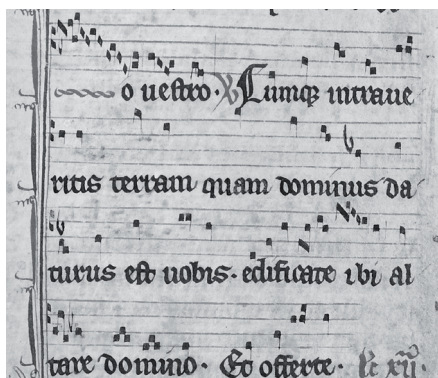 o uestro. V Cumq; intraue
ritis terram quam dominus da
turus est uobis. edificate ibi al
tare domino. Et offerte.